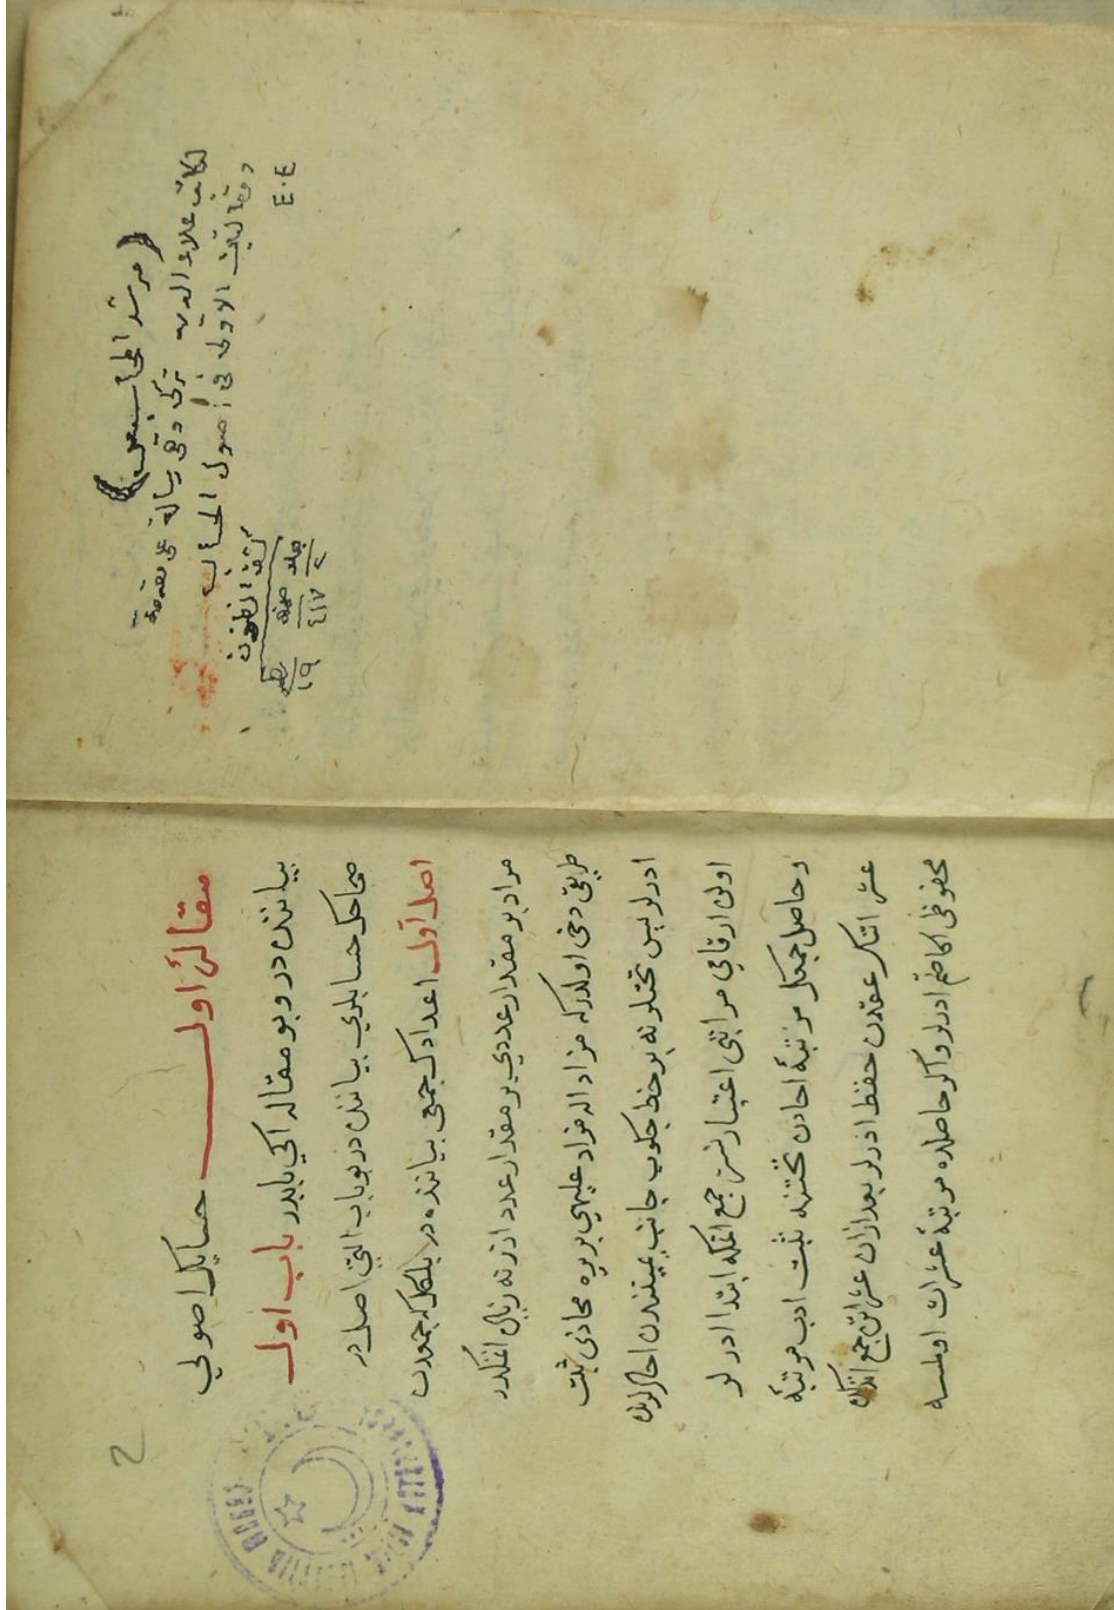 (مرشد المحاسبين)
لكاتب علاء الدين تركى وهى رسالة على مقدمة
ومقالتين الاولى فى اصول الحساب
٤٠٤
كشف الظنون
جلد صحيفه سطر
٢ ٤١٧ ١٩
2
مقالۀ اول حسابك اصولي
بياننده در وبو مقاله ايكي بابدر باب اول
صحاحك حسابلري بياننده در بو باب التي اصلدر
اصل اول اعدادك جمعي بياننده در بلكل كه جمعدن
مراد بر مقدار عددي بر مقدار عدد اوزرنه زياده اتمكدر
طريقي دخي اولدركه مزاد الله مزاد عليهي بربره محاذي ثبت
ادرلر پس تحتلرنه بر خط چكوب جانب يميندن احاد اولان
اولان ارقامي مراتبي اعتبارنسز جمع اتمكه ابتدا ادرلر
وحاصل جمعك مرتبۀ احادن تحتنه ثبت ادب مرتبۀ
عشراتك عقدن حفظ ادرلر بعد ازان عشراتي جمع اتدكده
محفوظي اكا ضم ادرلر واكر حاصلده مرتبۀ عشرات اولمسه